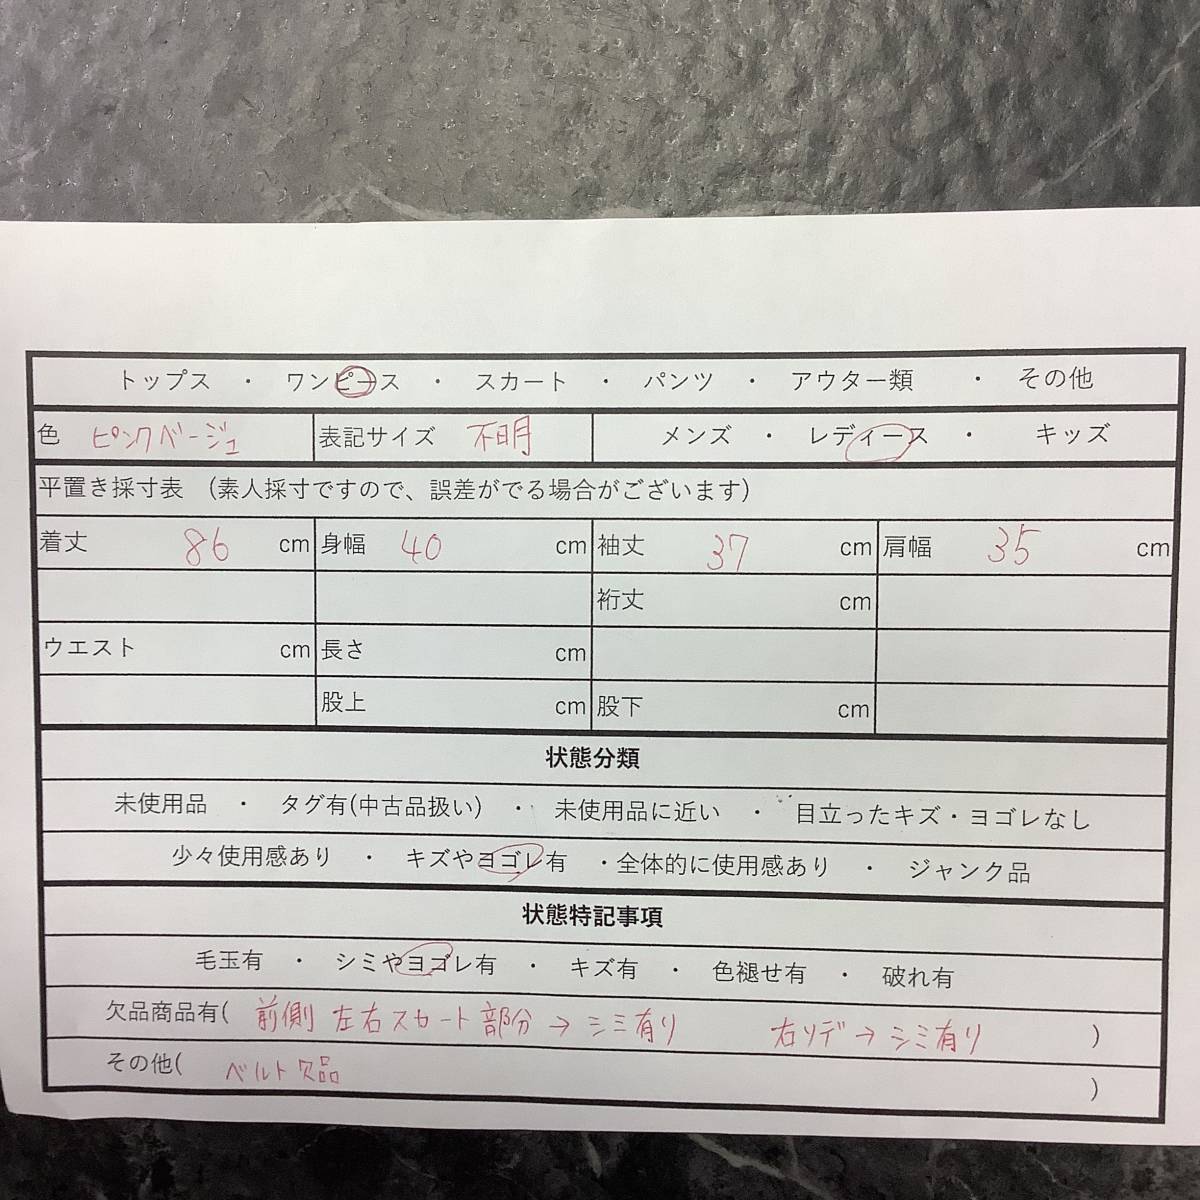 トップス ・ ワンピース ・ スカート ・ パンツ ・ アウター類 ・ その他
色 ピンクベージュ 表記サイズ 不明 メンズ ・ レディース ・ キッズ
平置き採寸表 (素人採寸ですので、誤差がでる場合がございます)
着丈 86 cm 身幅 40 cm 袖丈 37 cm 肩幅 35 cm
裄丈 cm
ウエスト cm 長さ cm
股上 cm 股下 cm
状態分類
未使用品 ・ タグ有(中古品扱い) ・ 未使用品に近い ・ 目立ったキズ・ヨゴレなし
少々使用感あり ・ キズやヨゴレ有 ・全体的に使用感あり ・ ジャンク品
状態特記事項
毛玉有 ・ シミやヨゴレ有 ・ キズ有 ・ 色褪せ有 ・ 破れ有
欠品商品有( 前側 左右スカート部分 → シミ有り 右ソデ → シミ有り )
その他( ベルト欠品 )